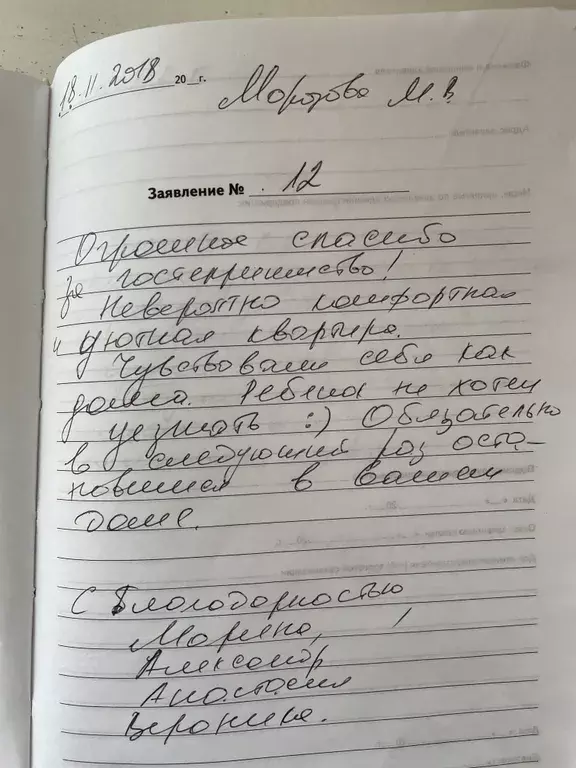 18.11.2018 20__г.
Морозова М.В.
Заявление № 12
Огромное спасибо
за гостеприимство!
Невероятно комфортная
и уютная квартира.
Чувствовали себя как
дома. Ребенок не хотел
уезжать :) Обязательно
в следующий раз оста-
новимся в вашем
доме.
С Благодарностью
Марина,
Александр
Анастасия
Вероника.